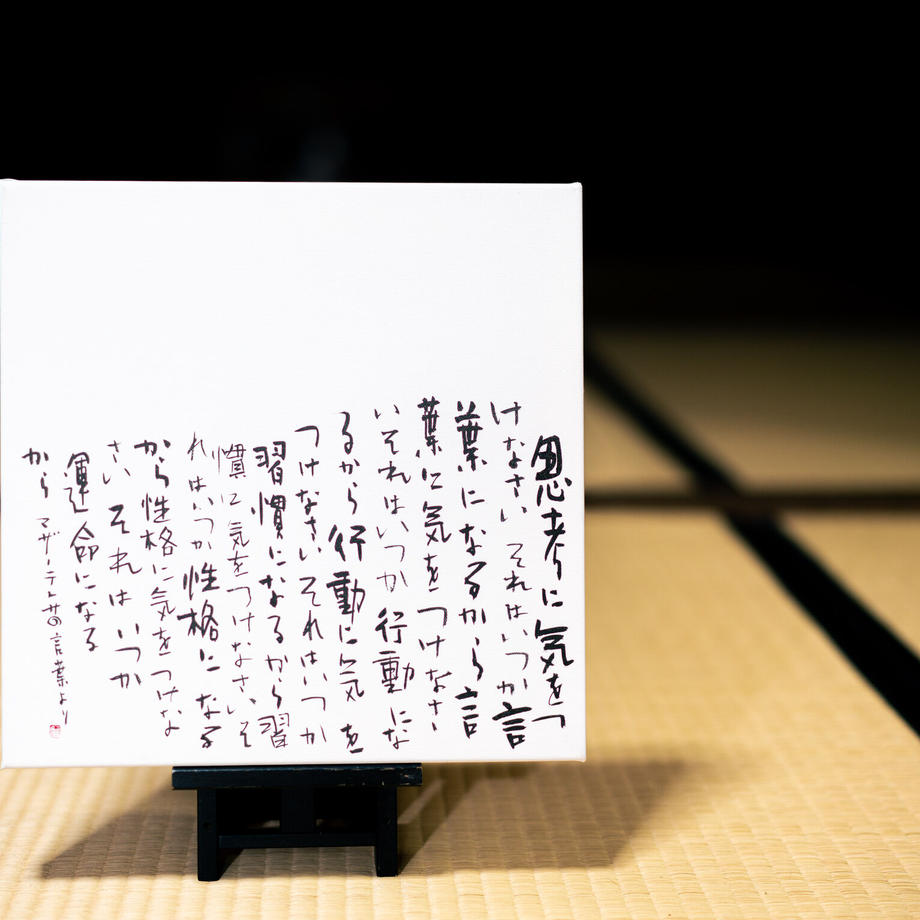 思考に気をつ
けなさい それはいつか言
葉になるから 言
葉に気をつけなさ
いそれはいつか 行動にな
るから 行動に気を
つけなさい それはいつか
習慣になるから 習
慣に気をつけなさい そ
れはいつか 性格になる
から 性格に気をつけな
さい それは いつか
運命になる
から マザーテレサの言葉より